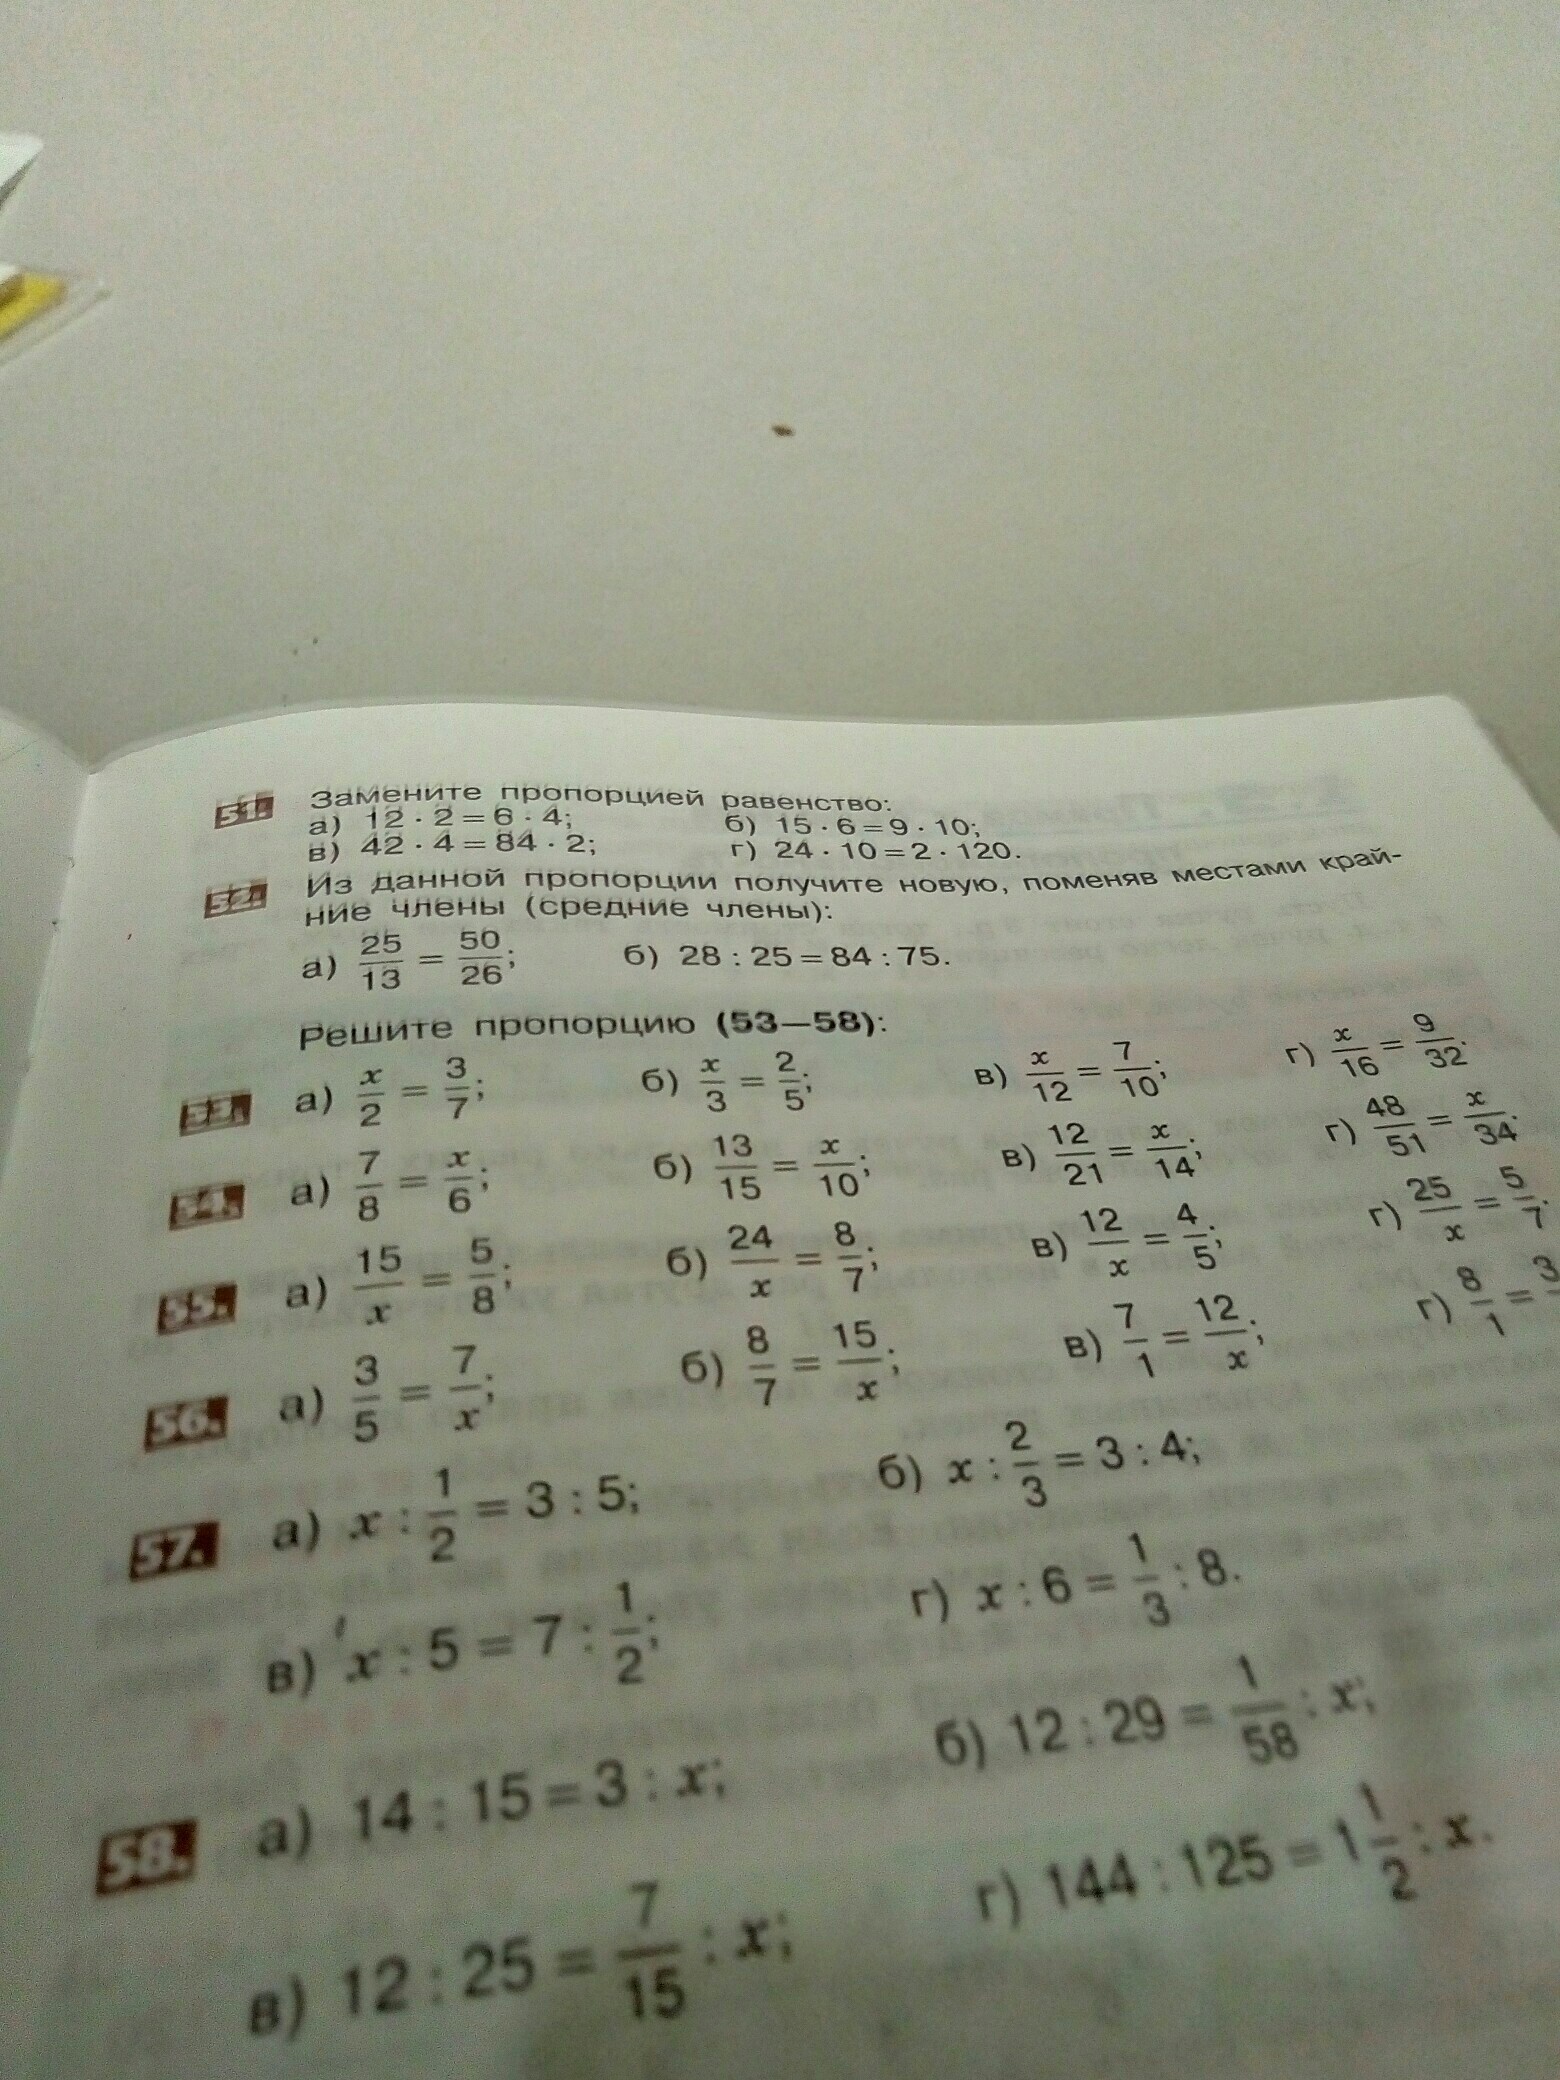 51. Замените пропорцией равенство:
а) 12 · 2 = 6 · 4; б) 15 · 6 = 9 · 10;
в) 42 · 4 = 84 · 2; г) 24 · 10 = 2 · 120.
52. Из данной пропорции получите новую, поменяв местами край-
ние члены (средние члены):
а) 25/13 = 50/26; б) 28 : 25 = 84 : 75.
Решите пропорцию (53—58):
53. а) x/2 = 3/7; б) x/3 = 2/5; в) x/12 = 7/10; г) x/16 = 9/32.
54. а) 7/8 = x/6; б) 13/15 = x/10; в) 12/21 = x/14; г) 48/51 = x/34.
55. а) 15/x = 5/8; б) 24/x = 8/7; в) 12/x = 4/5; г) 25/x = 5/7.
56. а) 3/5 = 7/x; б) 8/7 = 15/x; в) 7/1 = 12/x; г) 8/1 = 3
57. а) x : 1/2 = 3 : 5; б) x : 2/3 = 3 : 4;
в) x : 5 = 7 : 1/2; г) x : 6 = 1/3 : 8.
58. а) 14 : 15 = 3 : x; б) 12 : 29 = 1/58 : x;
в) 12 : 25 = 7/15 : x; г) 144 : 125 = 1 1/2 : x.